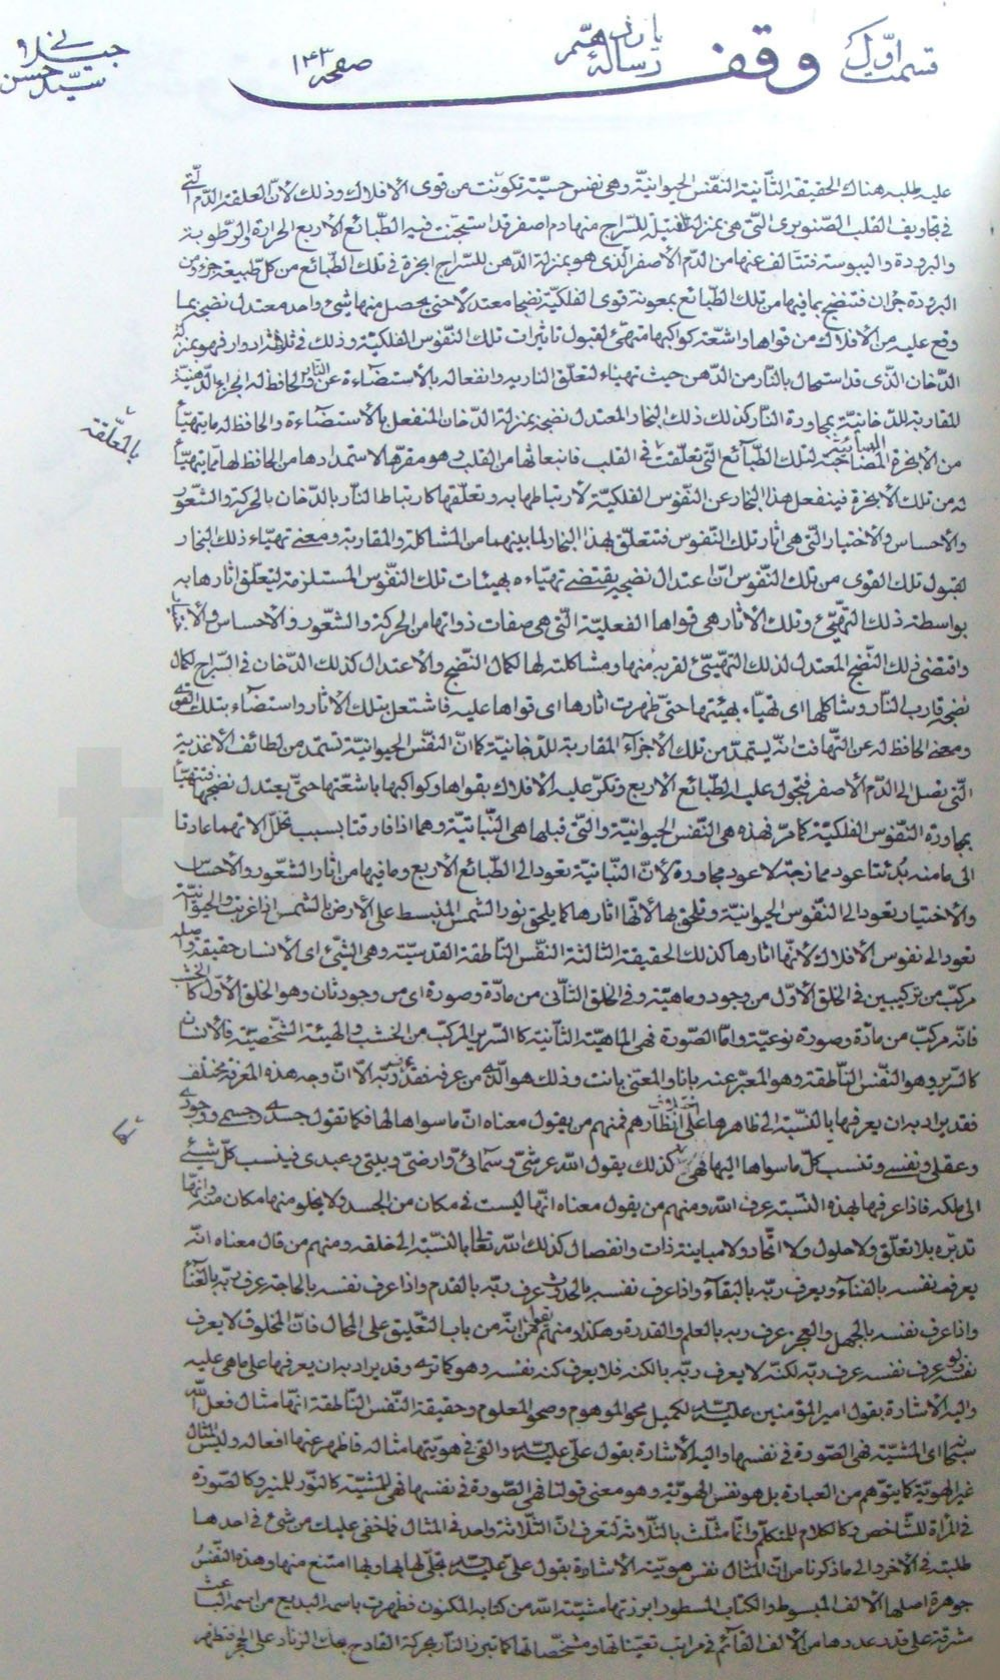 قسمت اوّل
وقف
رسالهٔ
صفحه ۱۴۳
سیّد حسن
عليه طلبه هناك الحقيقة الثّانية النّفس الحيوانيّة وهى نفس حسيّة تكوّنت من قوى الافلاك وذلك لانّ العلقة الدّم الّتى
فى تجاويف القلب الصّنوبرى الّتى هى بمنزلة الفتيلة للسّراج منها دم اصفر قد استجنّت فيه الطّبائع الاربع الحرارة والرّطوبة
والبرودة واليبوسة فتتالف عنها من الدّم الاصفر الّذى هو بمنزلة الدّهن للسّراج ابخرة فى تلك الطّبائع من كلّ طبيعة جزء ومن
البرودة جزءان فتنضج بما فيها من تلك الطّبائع بمعونة قوى الفلكيّة نضجا معتدلا حتى يحصل منها شىء واحد معتدل نضيج بما
وقع عليه من الافلاك من قواها واشعّة كواكبها متهيّئ لقبول تاثيرات تلك النّفوس الفلكيّة وذلك فى ثلاثة ادوار فهو بمنزلة
الدّخان الّذى قد استحال بالنّار من الدّهن حيث تهيّاء لتعلّق النار به وانفعاله بالاستضاءة عن النّار والحافظ له الاجزاء الدّهنيّة
المقاربة للدّخانيّة بمجاورة النّار كذلك ذلك البخار المعتدل نضجه بمنزلة الدّخان المنفعل بالاستضاءة والحافظ له ما يتهيّأ
من الابخرة المصاحبة لتلك الطّبائع الّتى تعلّقت فى القلب فانبعاثها من القلب وهو مقرّها لاستمدادها من الحافظ لها ممّا يتهيّأ
بالمعلّقة
له من تلك الابخرة فينفعل هذا البخار عن النّفوس الفلكيّة لارتباطها به وتعلّقها كارتباط النّار بالدّخان بالحركة والشّعور
والاحساس والاختيار الّتى هى اثار تلك النّفوس فتتعلّق بهذا البخار لما بينهما من المشاكلة والمقاربة ومعنى تهيّاء ذلك البخار
لقبول تلك القوى من تلك النّفوس انّ اعتدال نضجه يقتضى تهيّاءه بهيئات تلك النّفوس المستلزمة لتعلّق اثارها به
بواسطة ذلك التّهيّئ وتلك الاثار هى قواها الفعليّة الّتى هى صفات ذواتها من الحركة والشّعور والاحساس والاختيار
واقتضى ذلك النّضج المعتدل لذلك التّهيّئ لقربه منها ومشاكلته لها لكمال النّضج والاعتدال كذلك الدّخان فى السّراج لكمال
نضجه قارب النّار وشاكلها اى تهيّاء بهيئتها حتى ظهرت اثارها اى قواها عليه فاشتعل بتلك الاثار واستضاء بتلك القوى
ومعنى الحافظ له عن التّهافت انّه يستمدّ من تلك الاجزاء المقاربة للدّخانيّة كما انّ النّفس الحيوانيّة تستمدّ من لطائف الاغذية
الّتى تصل الى الدّم الاصفر فتجول عليه الطّبائع الاربع وتكرّ عليه الافلاك بقواها وكواكبها باشعّتها حتى يعتدل نضجها فتتهيّأ
بمجاورة النّفوس الفلكيّة كما مرّ فهذه هى النّفس الحيوانيّة والّتى قبلها هى النّباتيّة وهما اذا فارقتا بسبب تحلّل الاتهما عادتا
الى ما منه بدئتا عود ممازجة لا عود مجاورة لانّ النّباتية تعود الى الطّبائع الاربع وما فيها من اثار الشّعور والاحساس
والاختيار تعود الى النّفوس الحيوانيّة وتلحق بها لانّها اثارها كما يلحق نور الشمس المنبسط على الارض بالشمس اذا غربت والحيوانيّة
تعود الى نفوس الافلاك لانّها اثارها كذلك الحقيقة الثالثة النّفس النّاطقة القدسيّة وهى الشّىء اى الانسان حقيقة واصله
مركّب من تركيبين فى الخلق الاوّل من وجود وماهيّة وفى الخلق الثّانى من مادّة وصورة اى من وجود ثان وهو الخلق الاوّل كالخشب
فانّه مركّب من مادّة وصورة نوعيّة وامّا الصّورة فهى الماهيّة الثّانية كالسّرير المركّب من الخشب والهيئة الشّخصيّة فالانسان
كالسّرير وهو النّفس النّاطقة وهو المعبّر عنه بانا والمعنىّ بانت وذلك هو الّذى من عرفه فقد عرف ربّه الا انّ وجه هذه المعرفة مختلف
فقد يراد به ان يعرفها بالنّسبة الى ظاهرها على انظارهم فمنهم من يقول معناه انّ ما سواها لها فكما تقول جسدى وجسمى ووجودى
وعقلى ونفسى وتنسب كلّ ما سواها اليها فهى كذلك يقول اللّه عرشى وسمائى وارضى وبيتى وعبدى فينسب كلّ شىء
الى ملكه فاذا عرفها بهذه النّسبة عرف اللّه ومنهم من يقول معناه انّها ليست فى مكان من الجسد ولا يخلو منها مكان منه وانّها
تدبّره بلا تعلّق ولا حلول ولا اتّحاد ولا مباينة ذات وانفصال كذلك اللّه تعالى بالنّسبة الى خلقه ومنهم من قال معناه انّه
يعرف نفسه بالفناء ويعرف ربّه بالبقاء واذا عرف نفسه بالحدوث عرف ربّه بالقدم واذا عرف نفسه بالحاجة عرف ربّه بالغناء
واذا عرف نفسه بالجهل والعجز عرف ربه بالعلم والقدرة وهكذا ومنهم من يقول انّه من باب التّعليق على المحال فانّ المخلوق لا يعرف
نفسه عرف نفسه عرف ربّه لكنّه لا يعرف ربّه بالكنه فلا يعرف كنه نفسه وهو كما ترى وقد يراد به ان يعرفها على ما هى عليه
واليه الاشارة بقول امير المؤمنين عليه السّلام لكميل محو الموهوم وصحو المعلوم وحقيقة النّفس النّاطقة انّها مثال فعل اللّه
اى المشيّة فهى الصّورة فى نفسها واليه الاشارة بقول علىّ عليه السّلام والقى فى هويّتها مثاله فاظهر عنها افعاله وليس المثال
غير الهويّة كما يتوهّم من العبارة بل هو نفس الهويّة وهو معنى قولنا فهى الصّورة فى نفسها فهى للمشيّة كالنّور للمنير وكالصّورة
فى المرآة للشّاخص وكالكلام للمتكلّم وانّما مثّلت بالثّلاثة لتعرف انّ الثّلاثة واحد فى المثال فما خفى عليك من شىء فى احدها
طلبته فى الاخر والى ما ذكرنا من انّ المثال نفس هويّته الاشارة بقول علىّ عليه السّلام تجلّى لها بها وبها امتنع منها وهذه النّفس
جوهرة اصلها الالف المبسوط والكتاب المسطور ابرزتها مشيّة اللّه من كتابه المكنون فظهرت باسمه البديع من اسمه الباعث
مشرقة على قدر عددها من الالف القائم فى مراتب تعيّناتها ومشخّصاتها كما تبرز النّار بحركة القادح بحكّ الزّناد على الحجر فتظهر